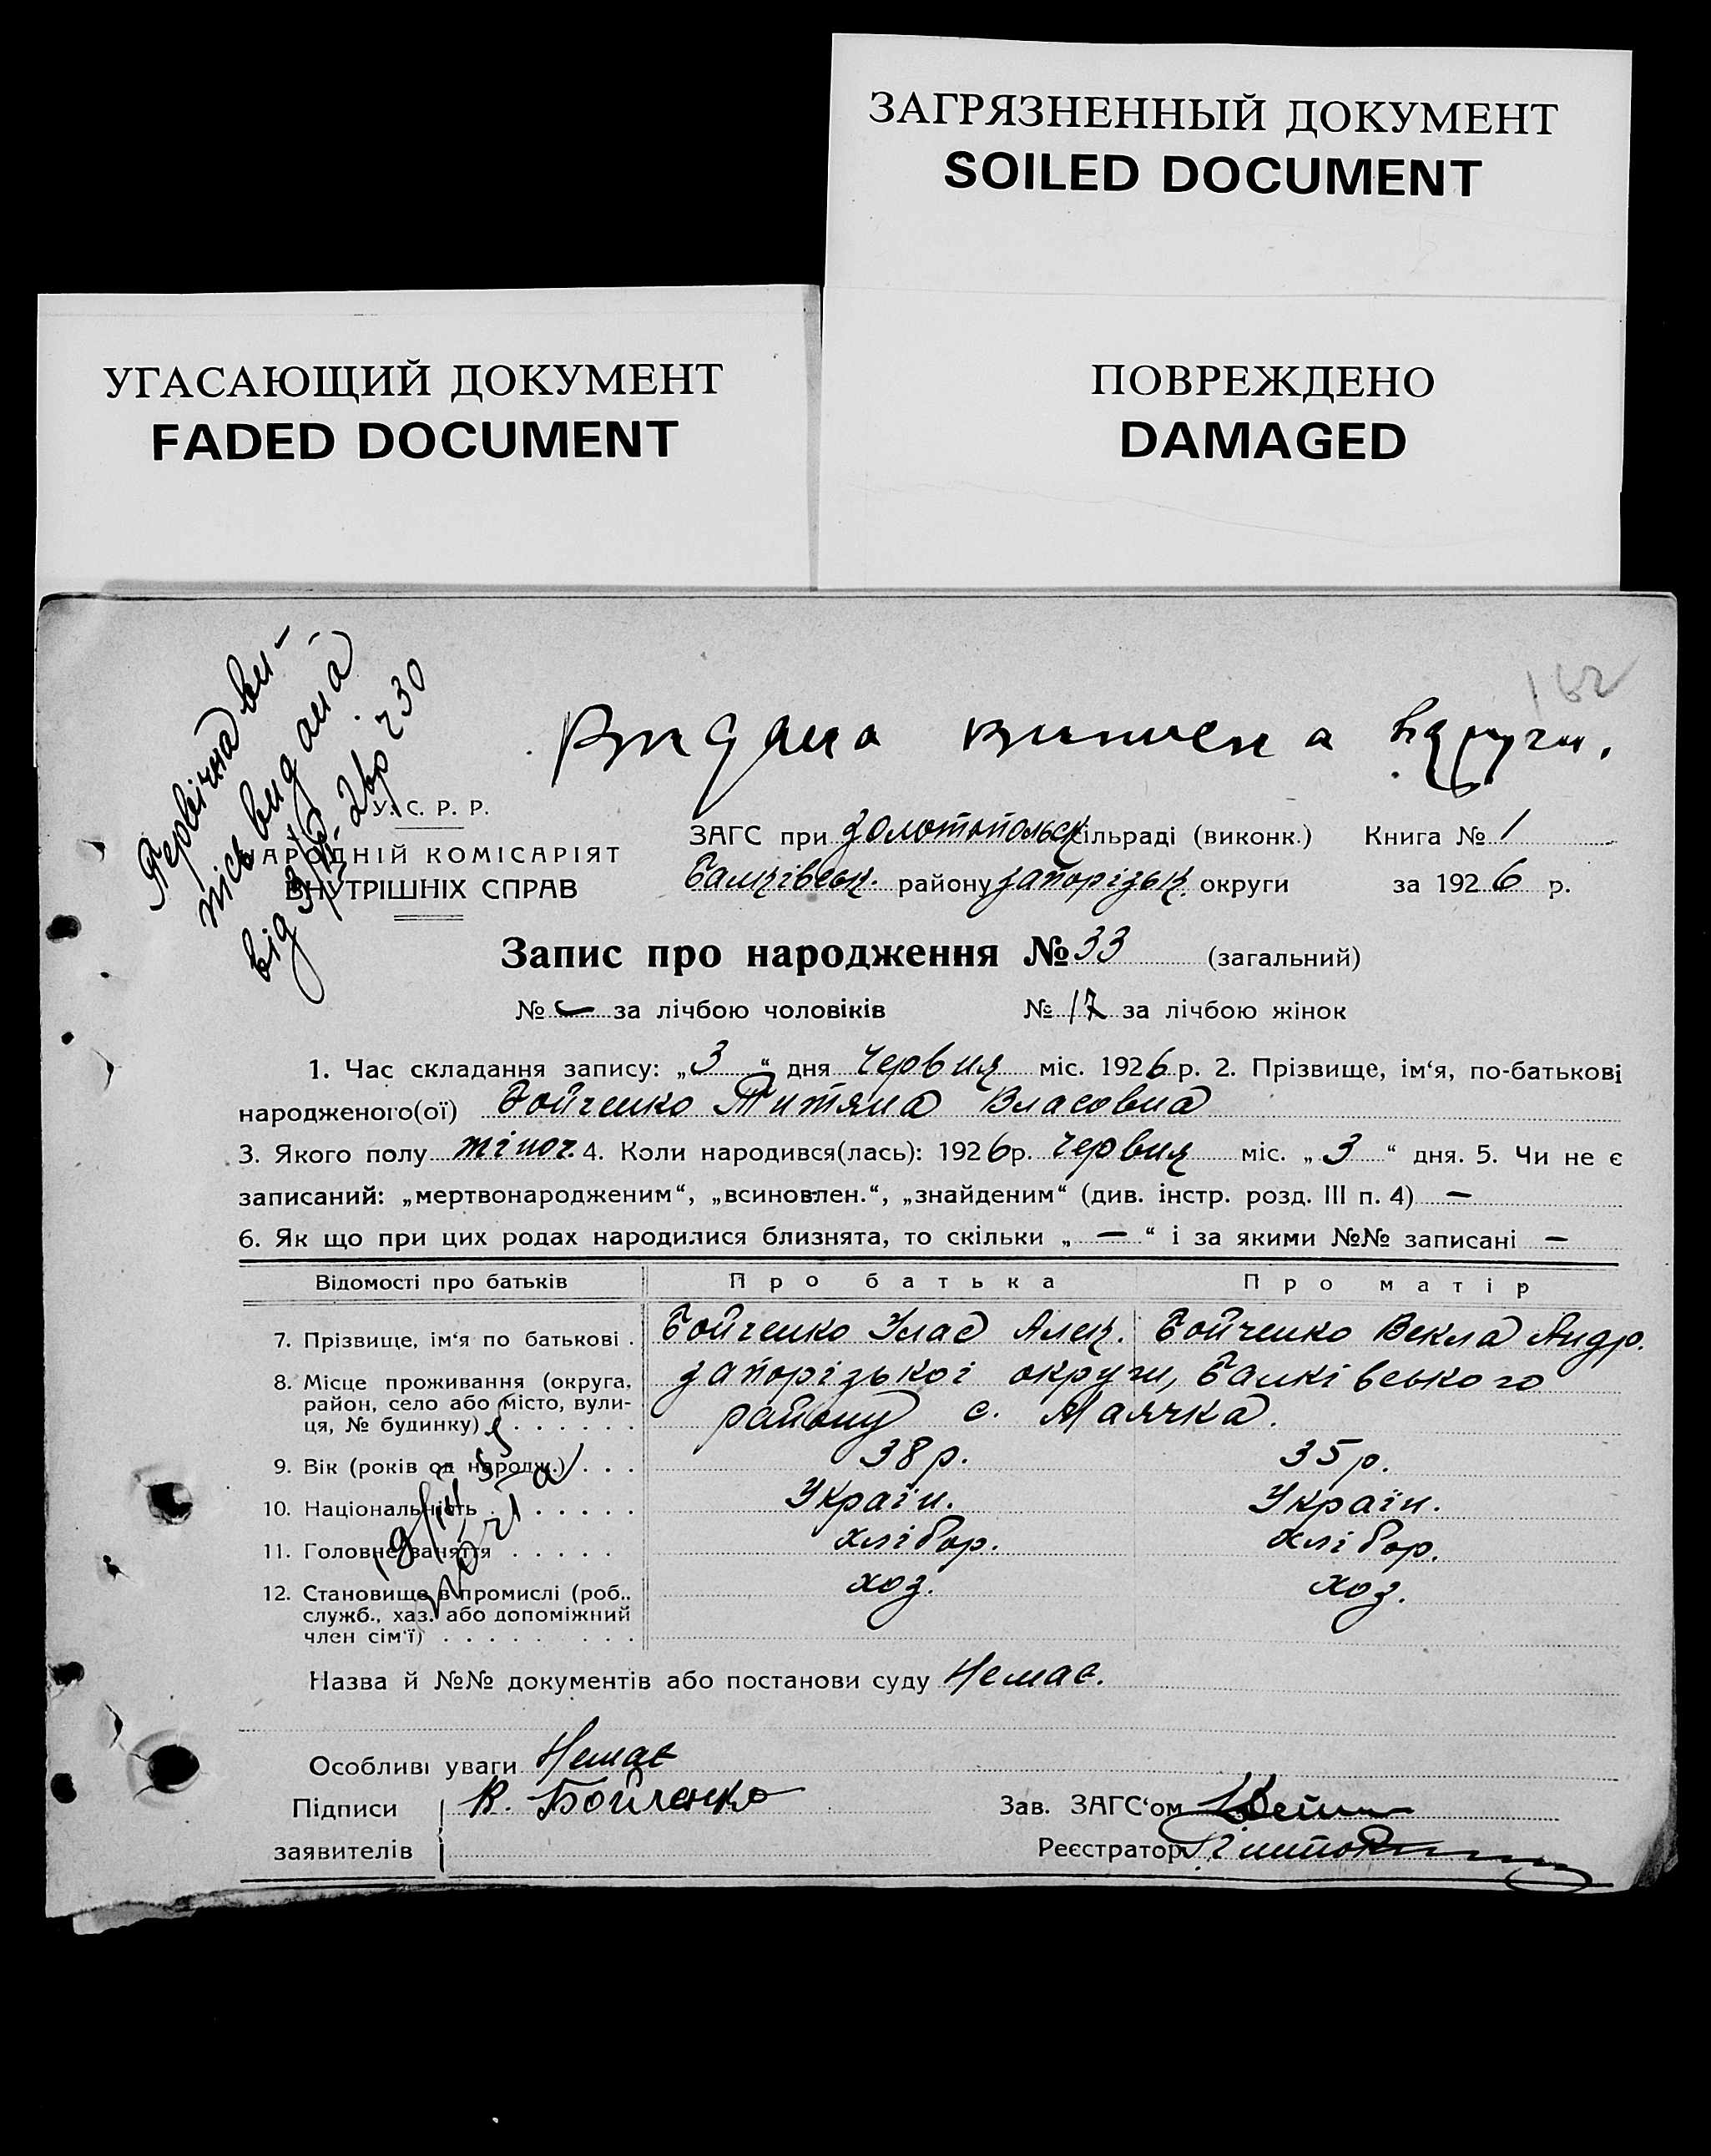 ЗАГРЯЗНЕННЫЙ ДОКУМЕНТ
SOILED DOCUMENT
УГАСАЮЩИЙ ДОКУМЕНТ
FADED DOCUMENT
ПОВРЕЖДЕНО
DAMAGED
162
Первічна ви-
пісь видана
від
Видана виписка вдруге.
У. С. Р. Р.
НАРОДНІЙ КОМІСАРІЯТ
ВНУТРІШНІХ СПРАВ
ЗАГС при Золотопольск сільраді (виконк.) Книга № 1
району Запорізьк. округи за 1926 р.
Запис про народження № 33 (загальний)
№ — за лічбою чоловіків № 17 за лічбою жінок
1. Час складання запису: „3“ дня Червня міс. 1926 р. 2. Прізвище, ім‘я, по-батькові
народженого(ої) Бойченко Титяна Власовна
3. Якого полу жіноч. 4. Коли народився(лась): 1926 р. Червня міс. „3“ дня. 5. Чи не є
записаний: „мертвонародженим“, „всиновлен.“, „знайденим“ (див. інстр. розд. III п. 4) —
6. Як що при цих родах народилися близнята, то скільки „—“ і за якими №№ записані —
Відомості про батьків Про батька Про матір
7. Прізвище, ім‘я по батькові . Бойченко Улас Алек. Бойченко Векла Андр.
8. Місце проживання (округа, Запорізької округи, Банківського
район, село або місто, вули- району с. Маячка.
ця, № будинку) . . . . . .
9. Вік (років од народж.) . . . 38 р. 35 р.
10. Національність . . . . . . Україн. Україн.
11. Головне заняття . . . . . хлібор. хлібор.
12. Становище в промислі (роб., хоз. хоз.
служб., хаз. або допоміжний
член сім‘ї) . . . . . . . .
Назва й №№ документів або постанови суду Немає.
Особливі уваги Немає
Підписи В. Бойченко Зав. ЗАГС‘ом
заявителів Реєстратор